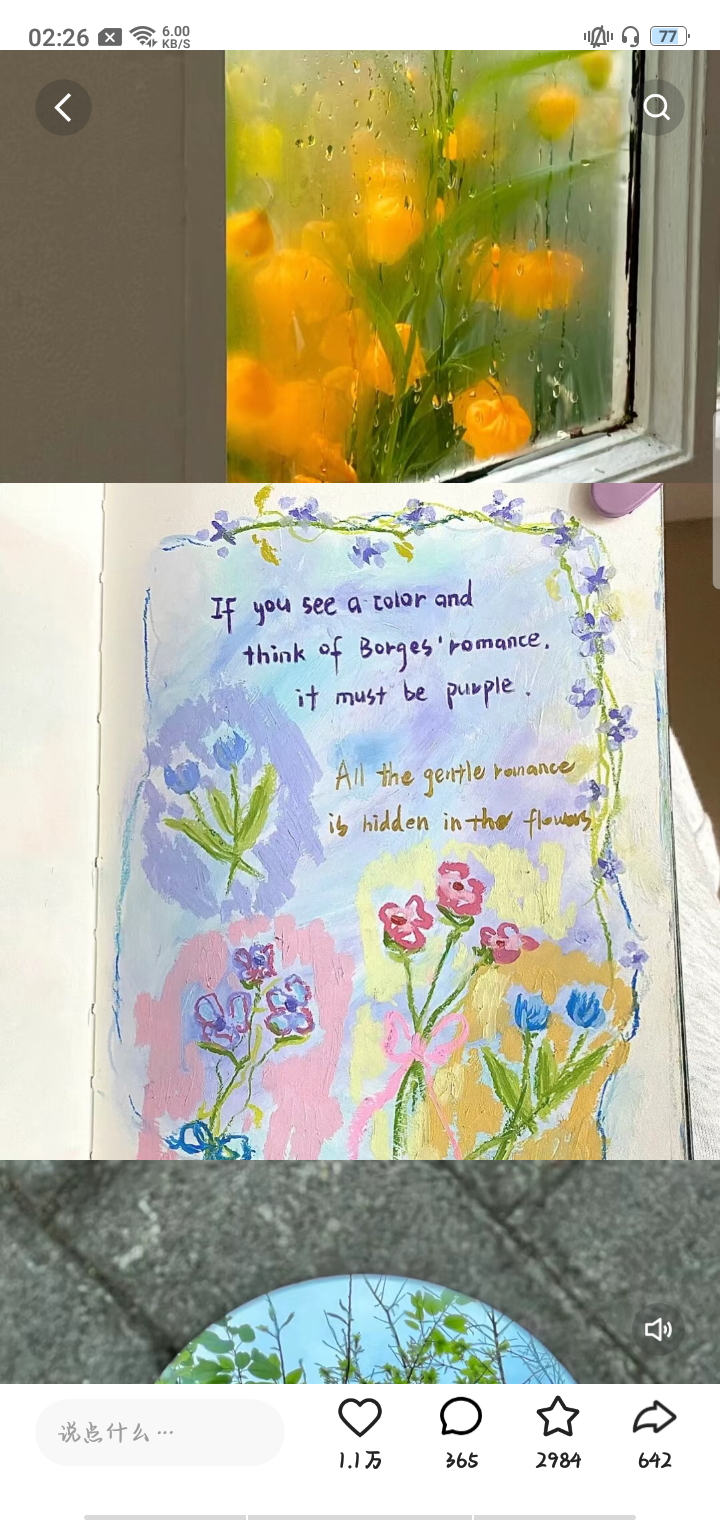 02:26
6.00
KB/S
77
If you see a color and
think of Borges' romance.
it must be purple.
All the gentle romance
is hidden in the flowers.
说点什么…
1.1万
365
2984
642